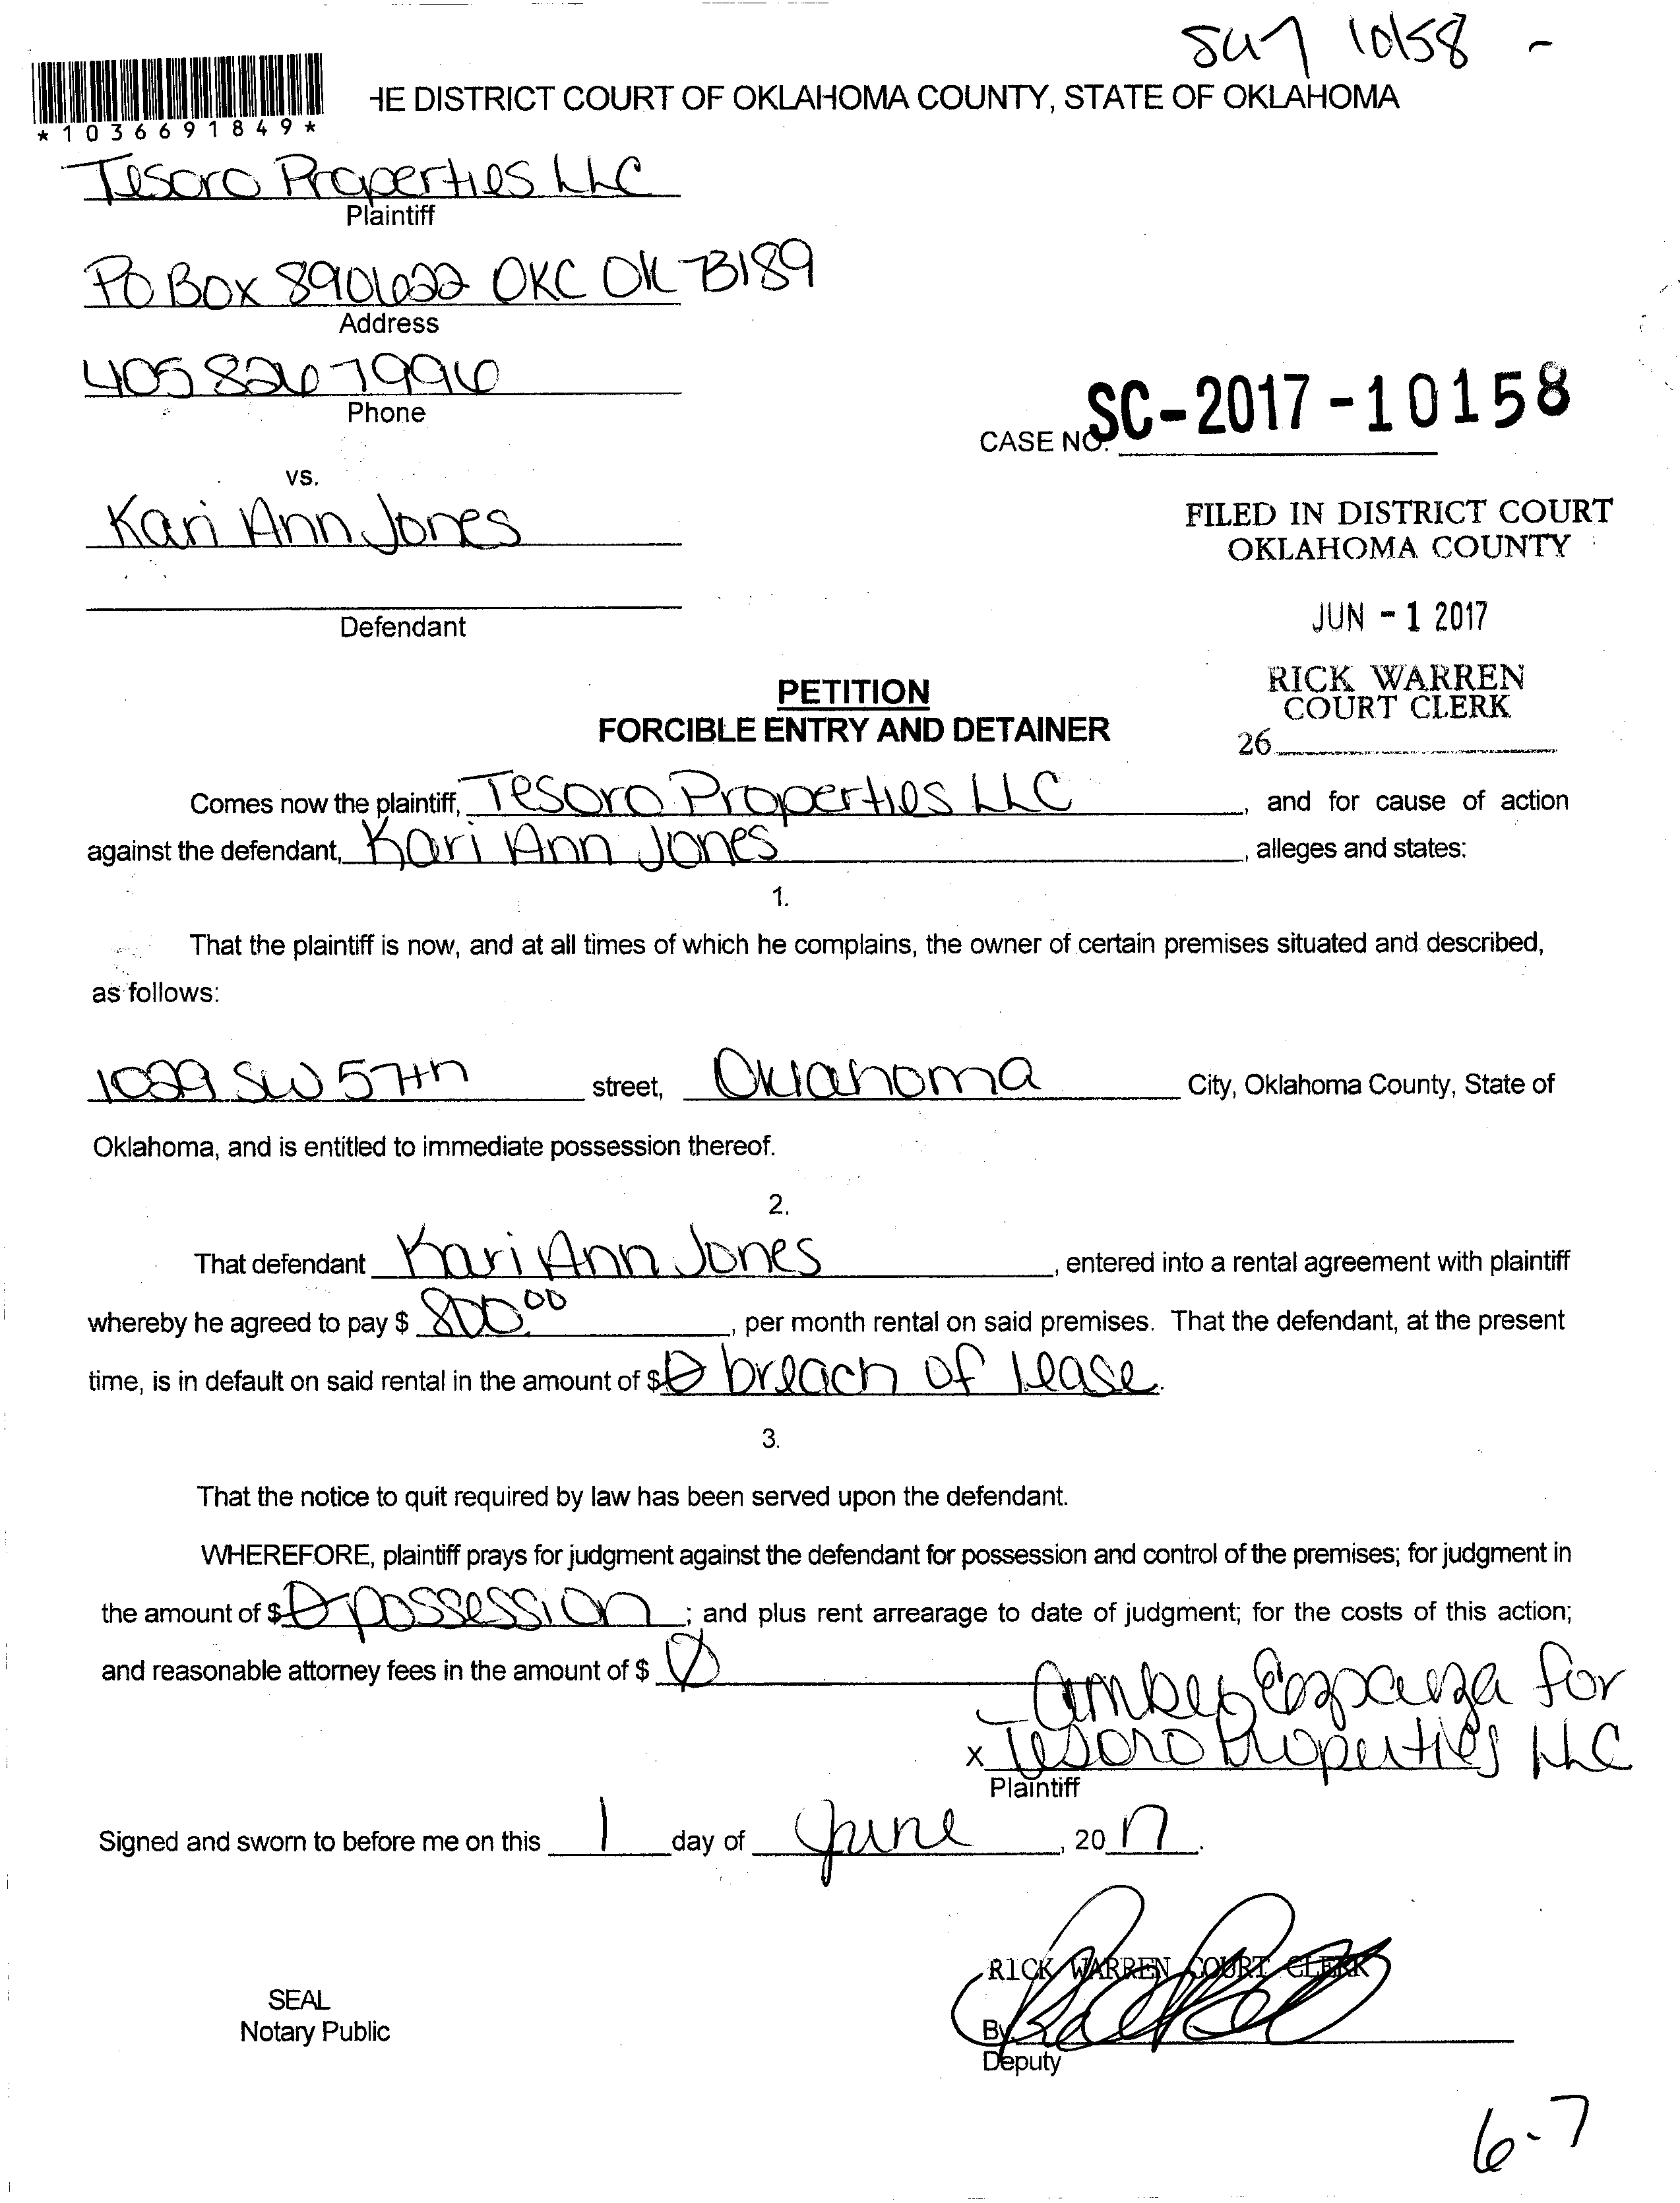 SC17 10158 -
*1036691849*
HE DISTRICT COURT OF OKLAHOMA COUNTY, STATE OF OKLAHOMA
Tesoro Properties LLC
Plaintiff
PO Box 890622 OKC OK 73189
Address
405 826 7996
Phone
CASE NO. SC-2017-10158
vs.
Kari Ann Jones
FILED IN DISTRICT COURT
OKLAHOMA COUNTY
JUN - 1 2017
Defendant
RICK WARREN
COURT CLERK
26
PETITION
FORCIBLE ENTRY AND DETAINER
Comes now the plaintiff, Tesoro Properties LLC, and for cause of action
against the defendant, Kari Ann Jones, alleges and states:
1.
That the plaintiff is now, and at all times of which he complains, the owner of certain premises situated and described,
as follows:
1029 SW 57th street, Oklahoma City, Oklahoma County, State of
Oklahoma, and is entitled to immediate possession thereof.
2.
That defendant Kari Ann Jones, entered into a rental agreement with plaintiff
whereby he agreed to pay $ 800.00, per month rental on said premises. That the defendant, at the present
time, is in default on said rental in the amount of $ 0 breach of lease.
3.
That the notice to quit required by law has been served upon the defendant.
WHEREFORE, plaintiff prays for judgment against the defendant for possession and control of the premises; for judgment in
the amount of $ 0 possession; and plus rent arrearage to date of judgment; for the costs of this action;
and reasonable attorney fees in the amount of $ 0
Amber Esparza for
x Tesoro Properties LLC
Plaintiff
Signed and sworn to before me on this 1 day of June, 2017.
RICK WARREN COURT CLERK
SEAL
Notary Public
By
Deputy
6-7